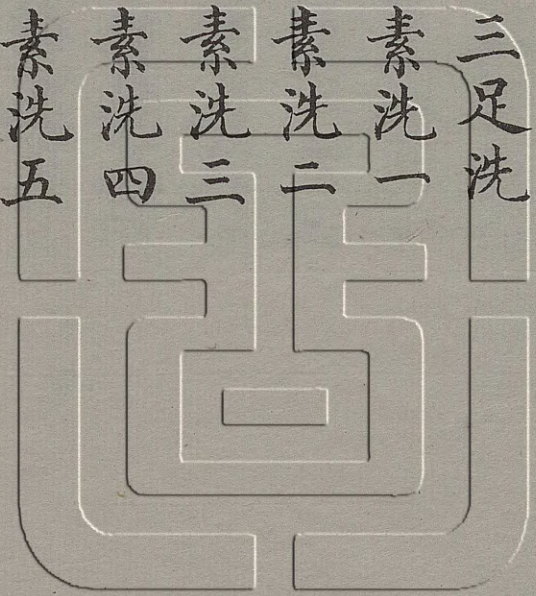 三足洗
素洗一
素洗二
素洗三
素洗四
素洗五